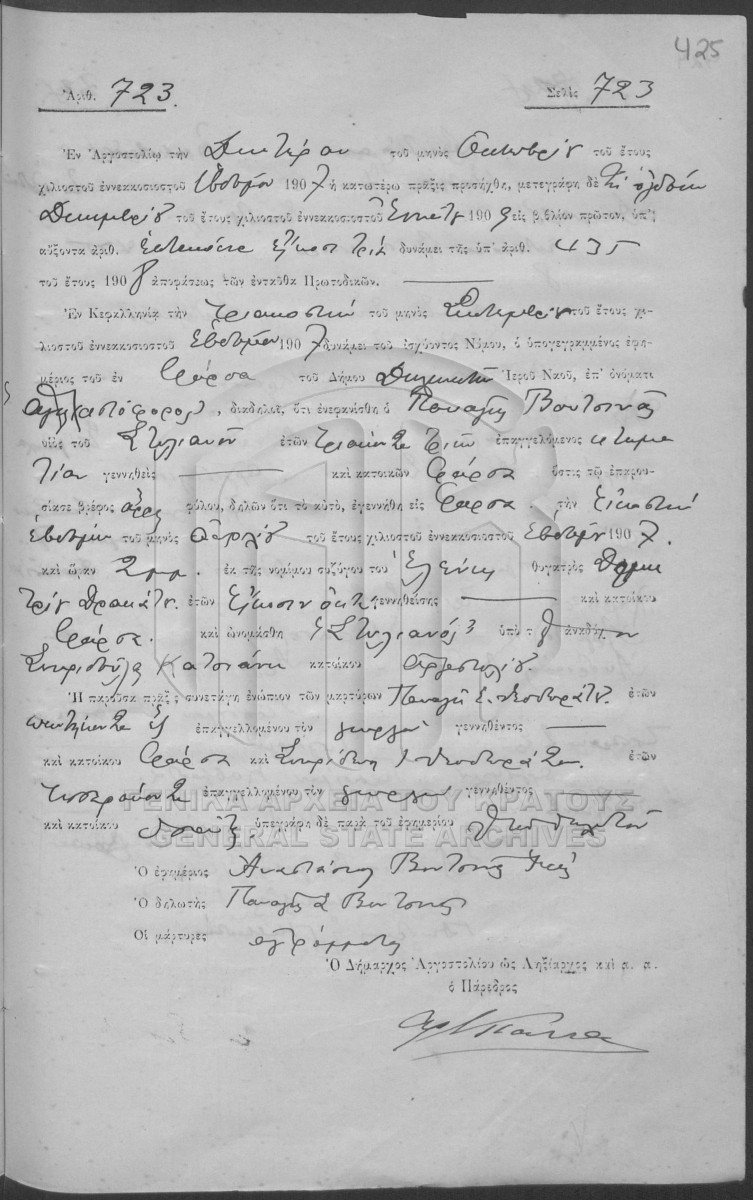 425
Ἀριθ. 723. Σελὶς 723
Ἐν Ἀργοστολίῳ τὴν Δευτέραν τοῦ μηνὸς Ὀκτωβρίου τοῦ ἔτους
χιλιοστοῦ ἐννεακοσιοστοῦ ἑβδόμου 1907 ἡ κατωτέρω πρᾶξις προσήχθη, μετεγράφη δὲ τῇ ὀγδόῃ
Δεκεμβρίου τοῦ ἔτους χιλιοστοῦ ἐννεακοσιοστοῦ ἐννάτου 1909 εἰς βιβλίον πρῶτον, ὑπ'
αὔξοντα ἀριθ. ἑπτακόσια εἴκοσι τρία δυνάμει τῆς ὑπ' ἀριθ. 435
τοῦ ἔτους 1908 ἀποφάσεως τῶν ἐνταῦθα Πρωτοδικῶν.
Ἐν Κεφαλληνίᾳ τὴν τριακοστὴν τοῦ μηνὸς Σεπτεμβρίου τοῦ ἔτους χι-
λιοστοῦ ἐννεακοσιοστοῦ ἑβδόμου 1907 δυνάμει τοῦ ἰσχύοντος Νόμου, ὁ ὑπογεγραμμένος ἐφη-
μέριος τοῦ ἐν Φάρσα τοῦ Δήμου Ἱεροῦ Ναοῦ, ἐπ' ὀνόματι
διαδηλοῖ, ὅτι ἐνεφανίσθη ὁ Παναγῆς Βουτσινᾶς
υἱὸς τοῦ Στυλιανοῦ ἐτῶν τριάκοντα τριῶν ἐπαγγελόμενος κτημα
τίαν γεννηθεὶς καὶ κατοικῶν Φάρσα ὅστις τῷ ἐπαρου-
σίασε βρέφος ἄρρ φύλου, δηλῶν ὅτι τὸ αὐτὸ, ἐγεννήθη εἰς Φάρσα. τὴν εἰκοστὴν
ἑβδόμην τοῦ μηνὸς Ἀπριλίου τοῦ ἔτους χιλιοστοῦ ἐννεακοσιοστοῦ ἑβδόμου 1907.
καὶ ὥραν 2 μμ. ἐκ τῆς νομίμου συζύγου του Ἑλένης θυγατρὸς Δημη
τρίου Δρακάτου. ἐτῶν εἴκοσιν ὀκτὼ γεννηθείσης καὶ κατοίκου
Φάρσα. καὶ ὠνομάσθη Στυλιανὸς ὑπὸ τοῦ ἀναδόχου
κατοίκου Ἀργοστολίου.
Ἡ παροῦσα πρᾶξις συνετάγη ἐνώπιον τῶν μαρτύρων Παναγῆ Σ. Θεοδωράτου. ἐτῶν
πεντήκοντα ἓξ ἐπαγγελλομένου τὸν γεωργὸν γεννηθέντος
καὶ κατοίκου Φάρσα καὶ Σπυρίδωνος Θεοδωράτου. ἐτῶν
τεσσαράκοντα ἐπαγγελλομένου τὸν γεωργὸν γεννηθέντος
καὶ κατοίκου ὑπεγράφη δὲ παρὰ τοῦ ἐφημερίου
ΓΕΝΙΚΑ ΑΡΧΕΙΑ ΤΟΥ ΚΡΑΤΟΥΣ
GENERAL STATE ARCHIVES
Ὁ ἐφημέριος Ἀναστάσιος Βουτσινᾶς Ἱερεύς
Ὁ δηλωτὴς Παναγῆς Σ Βουτσινᾶς
Οἱ μάρτυρες ἀγράμματοι
Ὁ Δήμαρχος Ἀργοστολίου ὡς Ληξίαρχος καὶ α. α.
ὁ Πάρεδρος